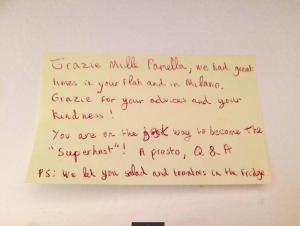 Grazie Mille Pamella, we had great
times in your flat and in Milano.
Grazie for your advices and your
kindness!
You are on the way to become the
"Superhost"! A presto, Q & A
PS: We let you salad and tomatoes in the fridge